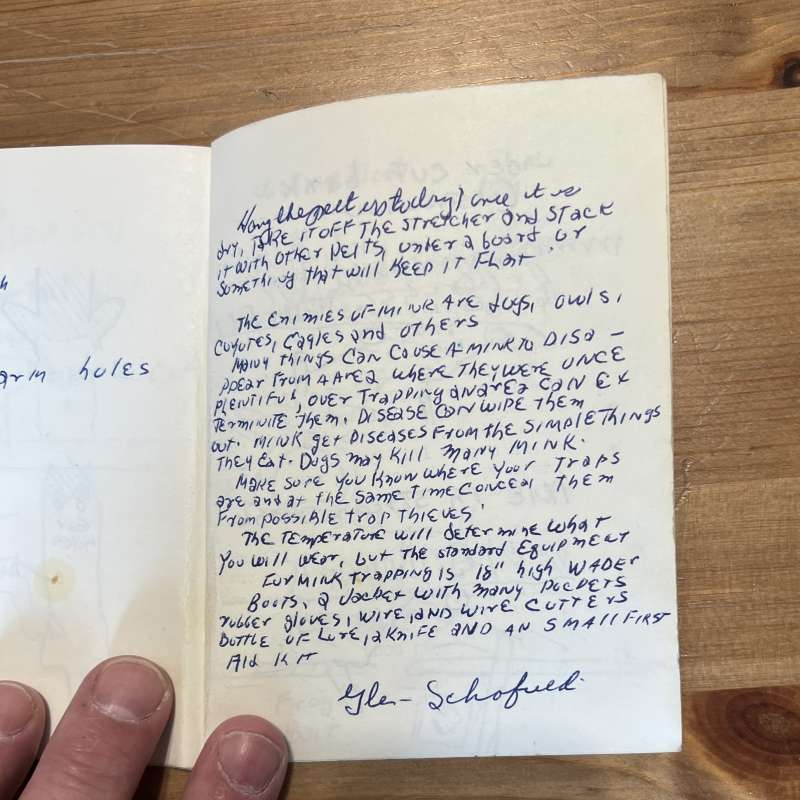 arm holes
Hang the pelt up to dry, once it is
dry, TAKE IT OFF THE STRETCHER and STACK
it WITH OTHER PELTS, under a board or
SOMETHING that will KEEP IT Flat.
THE ENIMIES OF MINK ARE dogs, owls,
COYOTES, EAGLES and others
MANY THINGS CAN CAUSE A MINK TO DISA-
PPEAR FROM A AREA WHERE THEY WERE ONCE
PLENTIFUL, OVER TRAPPING AN AREA CAN EX
TERMINITE THEM. DISEASE CAN WIPE THEM
OUT. MINK get DISEASES FROM the SIMPLE THINGS
THEY EAT. DOGS may KILL MANY MINK.
MAKE SURE YOU KNOW WHERE YOUR TRAPS
are and at the SAME TIME CONCEAL THEM
FROM POSSIBLE trap THIEVES.
THE TEMPERATURE will determine WHAT
You will WEAR, but THE standard EQUIPMENT
FOR MINK TRAPPING IS 18" high WADER
BOOTS, a JACKET WITH MANY POCKETS
rubber gloves, WIRE, AND WIRE CUTTERS
BOTTLE OF LURE, a KNIFE AND AN SMALL FIRST
AID KIT
Glen Schofield